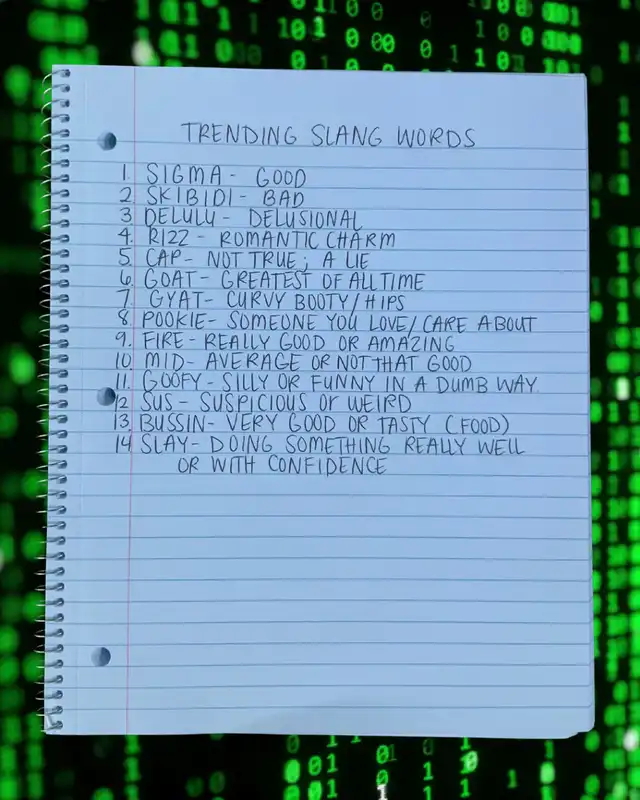 TRENDING SLANG WORDS
1. SIGMA - GOOD
2. SKIBIDI - BAD
3 DELULU - DELUSIONAL
4. RIZZ - ROMANTIC CHARM
5 CAP - NOT TRUE; A LIE
6. GOAT - GREATEST OF ALL TIME
7. GYAT - CURVY BOOTY/HIPS
8 POOKIE - SOMEONE YOU LOVE/CARE ABOUT
9. FIRE - REALLY GOOD OR AMAZING
10. MID - AVERAGE OR NOT THAT GOOD
11. GOOFY - SILLY OR FUNNY IN A DUMB WAY
12 SUS - SUSPICIOUS Or WEIRD
13. BUSSIN - VERY GOOD OR TASTY (FOOD)
14 SLAY - DOING SOMETHING REALLY WELL
OR WITH CONFIDENCE